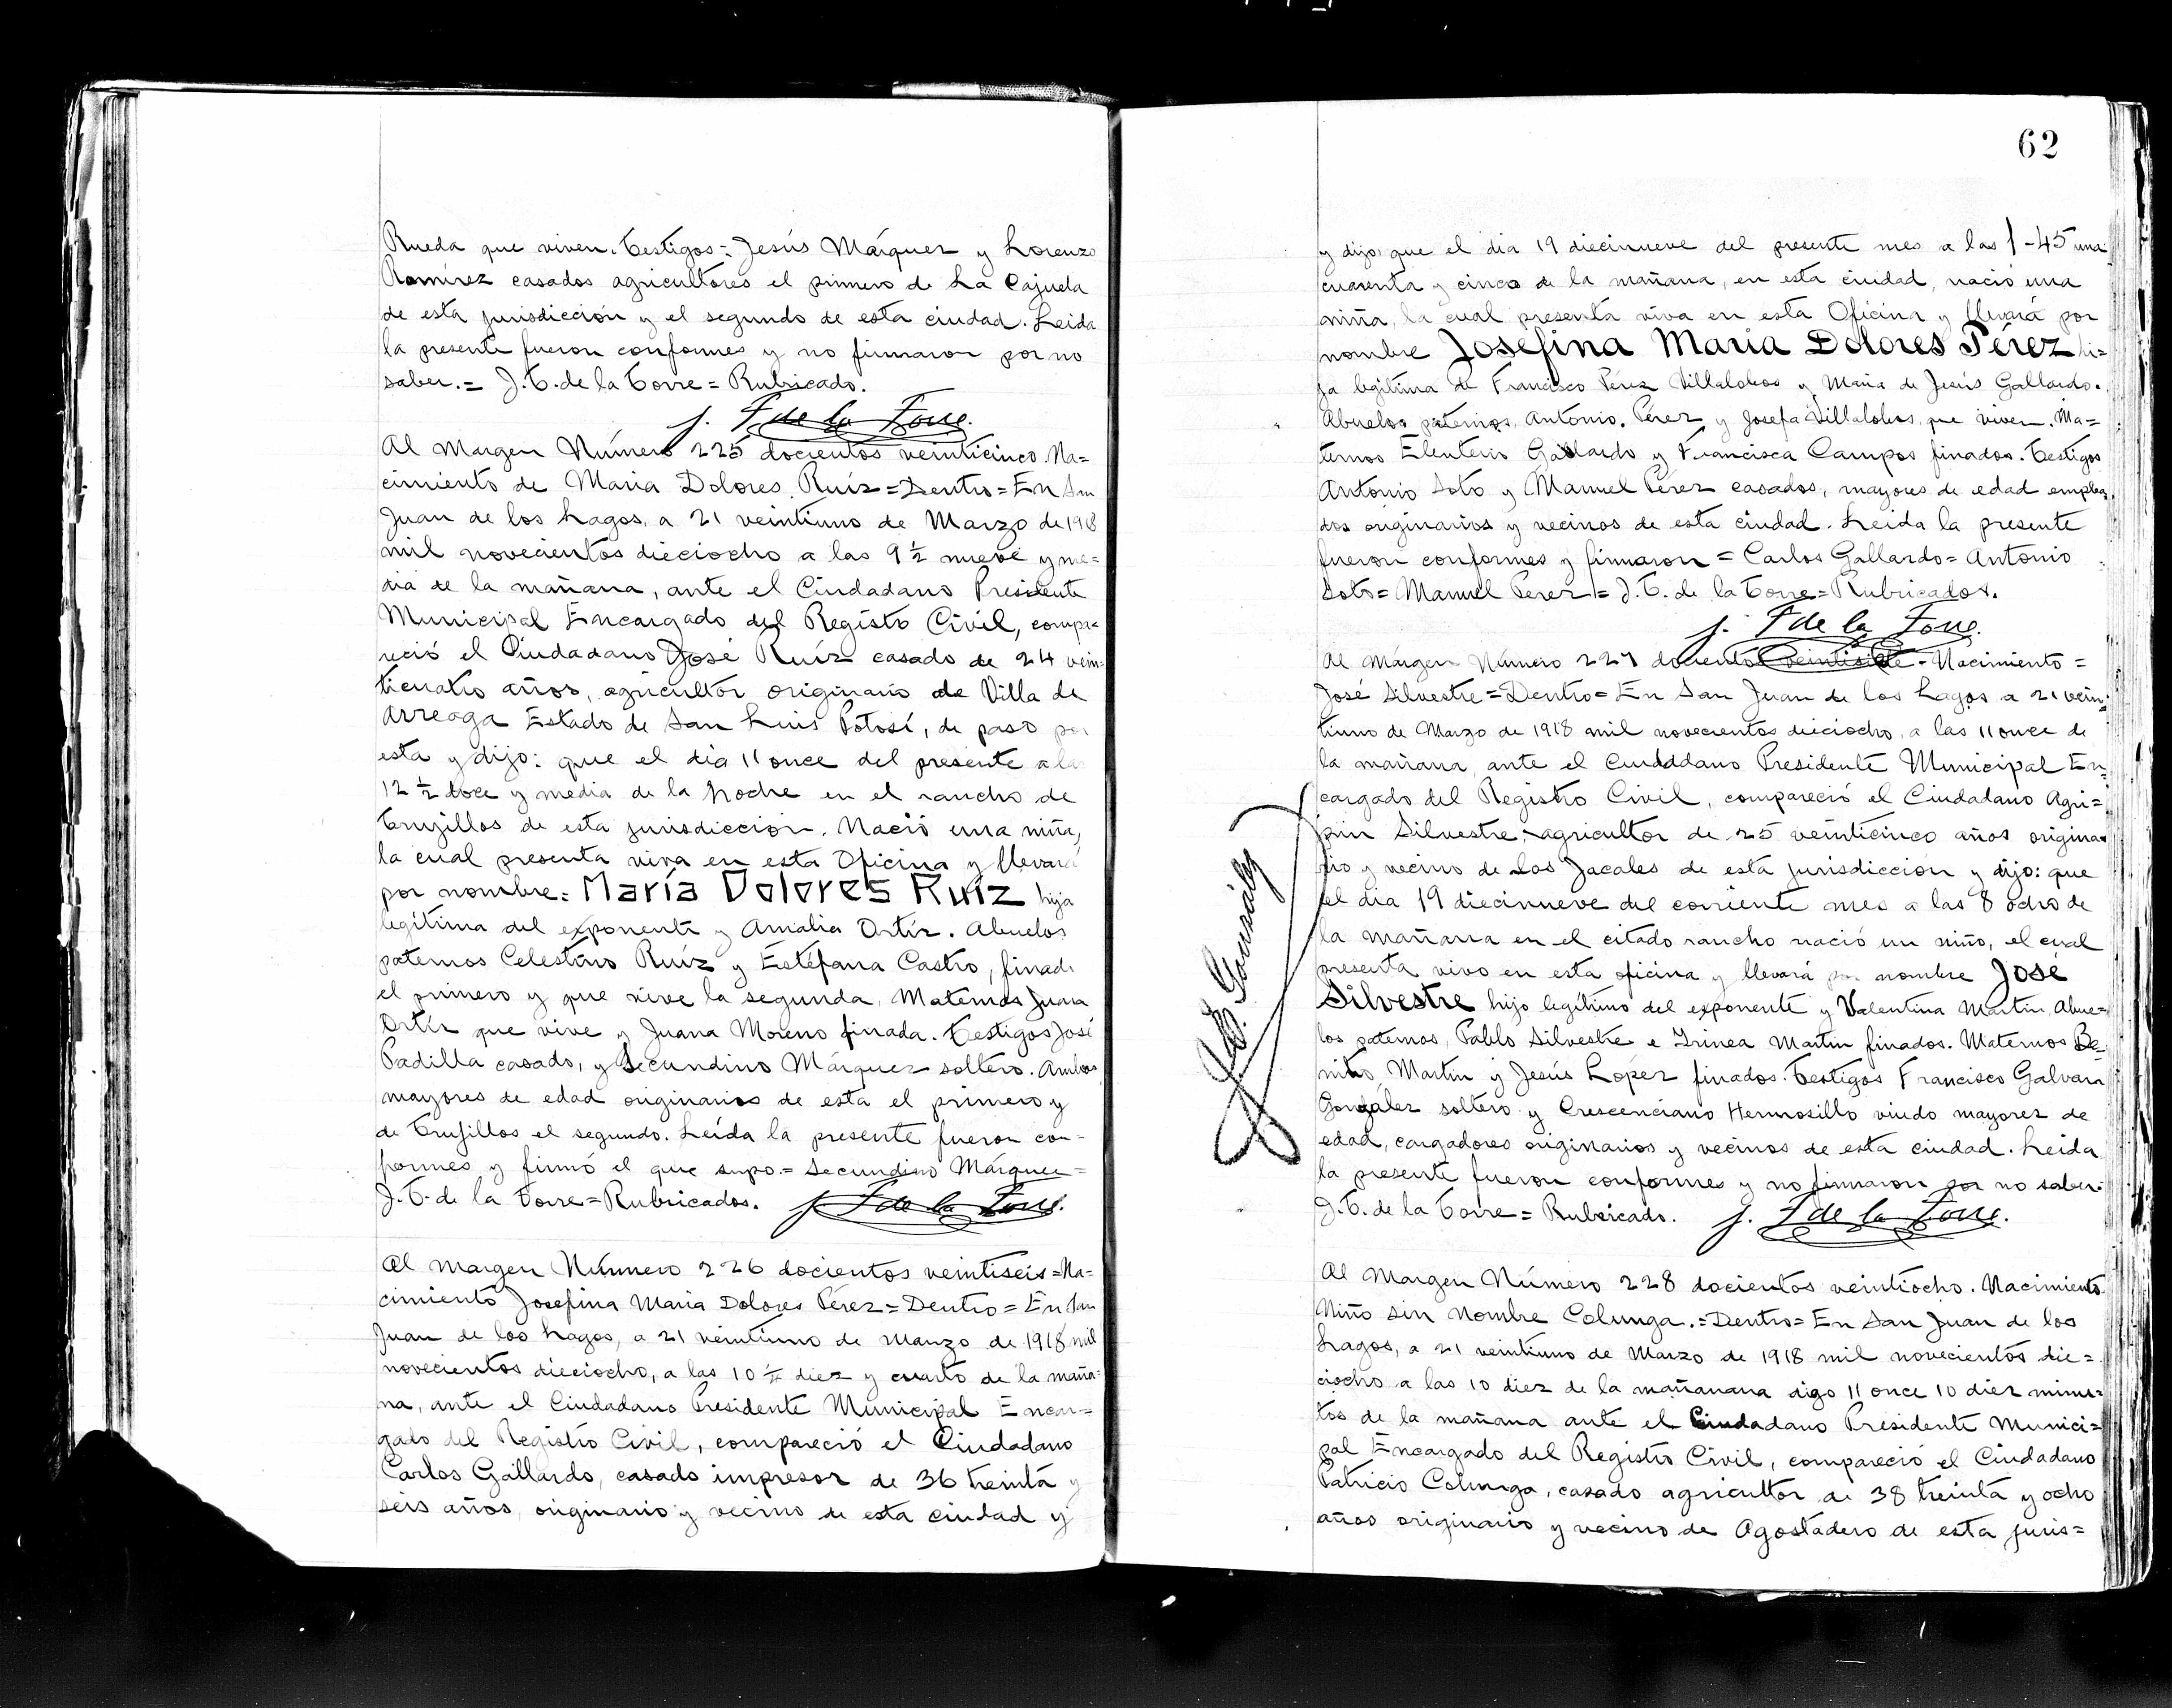 Rueda que viven. Testigos: Jesús Márquez y Lorenzo
Ramírez casados agricultores el primero de La Cajuela
de esta jurisdicción y el segundo de esta ciudad. Leida
la presente fueron conformes y no firmaron por no
saber.= J.T. de la Torre = Rubricado.
J. T de la Torre.
Al Margen Número 225 docientos veinticinco. Na=
cimiento de Maria Dolores Ruíz = Dentro = En San
Juan de los Lagos, a 21 veintiuno de Marzo de 1918
mil novecientos dieciocho a las 9 1/2 nueve y me=
dia de la mañana, ante el Ciudadano Presidente
Municipal Encargado del Registro Civil, compa=
reció el Ciudadano José Ruíz casado de 24 vein=
ticuatro años, agricultor originario de Villa de
Arreaga Estado de San Luis Potosí, de paso por
esta y dijo: que el dia 11 once del presente a las
12 1/2 doce y media de la noche en el rancho de
Trujillos de esta jurisdicción. Nació una niña,
la cual presenta viva en esta Oficina y llevará
por nombre: María Dolores Ruíz hija
legítima del exponente y Amalia Ortíz. Abuelos
paternos Celestino Ruíz y Estéfana Castro, finado
el primero y que vive la segunda, Maternos Juan
Ortíz que vive y Juana Moreno finada. Testigos José
Padilla casado, y Secundino Márquez soltero. Ambos
mayores de edad originarios de esta el primero y
de Trujillos el segundo. Leída la presente fueron con-
formes y firmó el que supo.= Secundino Márquez=
J.T. de la Torre = Rubricados. J. T de la Torre.
Al margen Número 226 docientos veintiseis = Na=
cimiento Josefina Maria Dolores Pérez = Dentro = En San
Juan de los Lagos, a 21 veintiuno de Marzo de 1918 mil
novecientos dieciocho, a las 10 1/4 diez y cuarto de la maña=
na, ante el Ciudadano Presidente Municipal Encar=
gado del Registro Civil, compareció el Ciudadano
Carlos Gallardo, casado impresor de 36 treinta y
seis años, originario y vecino de esta ciudad y
62
y dijo: que el dia 19 diecinueve del presente mes a las 1-45 una
cuarenta y cinco de la mañana, en esta ciudad, nació una
niña, la cual presenta viva en esta Oficina y llevará por
nombre Josefina Maria Dolores Pérez hi=
ja legítima de Francisco Pérez Villalobos y Maria de Jesús Gallardo.
Abuelos paternos, Antonio Pérez y Josefa Villalobos, que viven. Ma=
ternos Eleuterio Gallardo y Francisca Campos finados. Testigos
Antonio Soto y Manuel Pérez casados, mayores de edad emplea
dos originarios y vecinos de esta ciudad. Leida la presente
fueron conformes y firmaron = Carlos Gallardo = Antonio
Soto = Manuel Pérez = J.T. de la Torre = Rubricados.
J. T de la Torre.
Al Márgen Número 227 docientos veintisiete - Nacimiento =
José Silvestre = Dentro = En San Juan de los Lagos a 21 vein=
tiuno de Marzo de 1918 mil novecientos dieciocho, a las 11 once de
la mañana, ante el Ciudadano Presidente Municipal En=
cargado del Registro Civil, compareció el Ciudadano Agri=
pin Silvestre, agricultor de 25 veinticinco años origina=
rio y vecino de Los Jacales de esta jurisdicción y dijo: que
el dia 19 diecinueve del corriente mes a las 8 ocho de
la mañana en el citado rancho nació un niño, el cual
presenta vivo en esta oficina y llevará por nombre José
Silvestre hijo legítimo del exponente y Valentina Martin, Abue=
los paternos, Pablo Silvestre e Irinea Martin finados. Maternos Be
nito Martin y Jesús López finados. Testigos Francisco Galvan
González soltero y Crescenciano Hermosillo viudo mayores de
edad, cargadores originarios y vecinos de esta ciudad. Leida
la presente fueron conformes y no firmaron por no saber.
J.T. de la Torre = Rubricado. J. T de la Torre.
González
Al Margen Número 228 docientos veintiocho. Nacimiento
Niño sin nombre Colunga. = Dentro = En San Juan de los
Lagos, a 21 veintiuno de Marzo de 1918 mil novecientos die=
ciocho a las 10 diez de la mañanana digo 11 once 10 diez minu=
tos de la mañana ante el Ciudadano Presidente Munici=
pal Encargado del Registro Civil, compareció el Ciudadano
Patricio Colunga, casado agricultor de 38 treinta y ocho
años originario y vecino de Agostadero de esta juris=